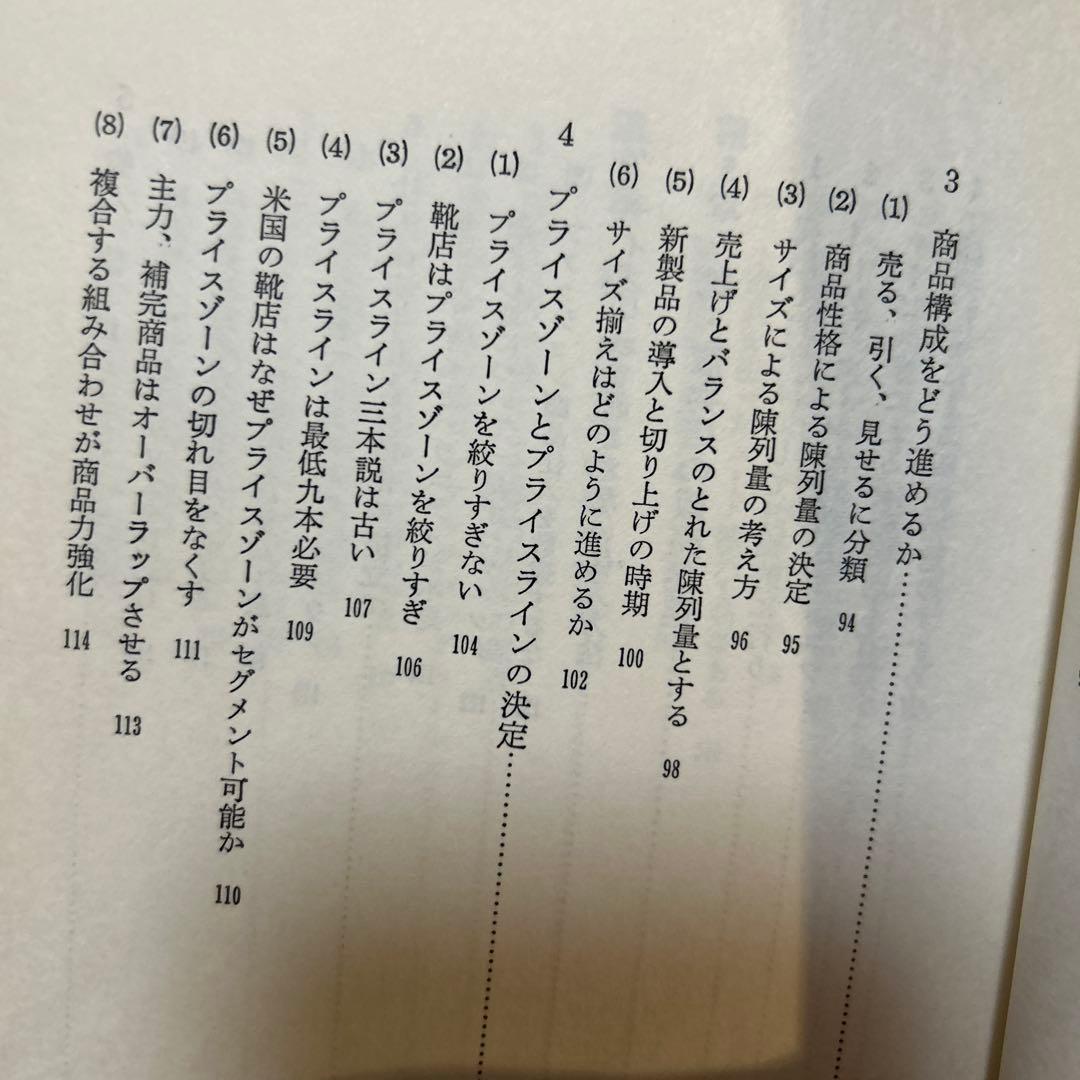 3 商品構成をどう進めるか……………………
(1) 売る、引く、見せるに分類 94
(2) 商品性格による陳列量の決定 95
(3) サイズによる陳列量の考え方 96
(4) 売上げとバランスのとれた陳列量とする 98
(5) 新製品の導入と切り上げの時期 100
(6) サイズ揃えはどのように進めるか 102
4 プライスゾーンとプライスラインの決定……………………
(1) プライスゾーンを絞りすぎない 104
(2) 靴店はプライスゾーンを絞りすぎ 106
(3) プライスライン三本説は古い 107
(4) プライスラインは最低九本必要 109
(5) 米国の靴店はなぜプライスゾーンがセグメント可能か 110
(6) プライスゾーンの切れ目をなくす 111
(7) 主力、補完商品はオーバーラップさせる 113
(8) 複合する組み合わせが商品力強化 114